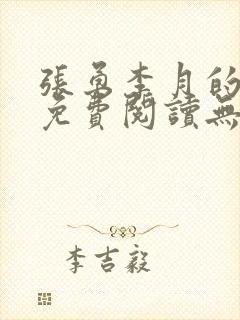 張勇李月的
免費閱讀無
李吉毅